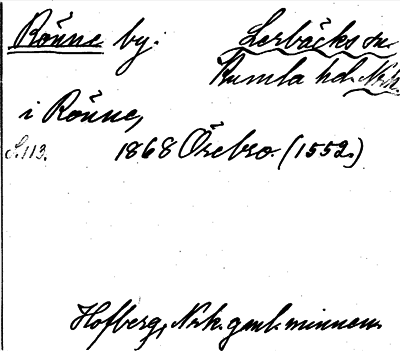 Rönne by. Lerbäcks sn.
Kumla hd. Nrk.
i Rönne,
S. 113. 1868 Örebro. (1552.)
Hofberg, Nrk. gml. minnen